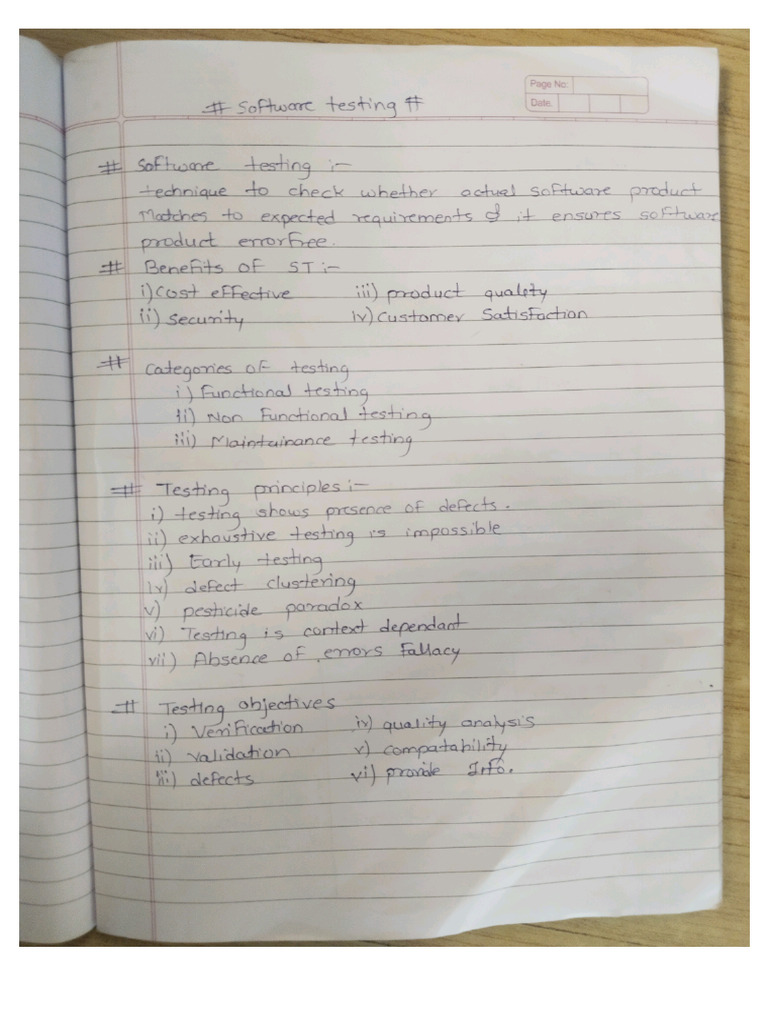 Page No:
Date.
# Software testing #
# Software testing :-
technique to check whether actual software product
Matches to expected requirements & it ensures software
product errorfree.
# Benefits of ST :-
i) Cost effective iii) product quality
ii) Security iv) Customer Satisfaction
# Categories of testing
i) Functional testing
ii) Non Functional testing
iii) Maintainance testing
# Testing principles :-
i) testing shows presence of defects.
ii) exhaustive testing is impossible
iii) Early testing
iv) defect clustering
v) pesticide paradox
vi) Testing is context dependant
vii) Absence of errors Fallacy
# Testing objectives
i) Verification iv) quality analysis
ii) validation v) compatability
iii) defects vi) provide Info.